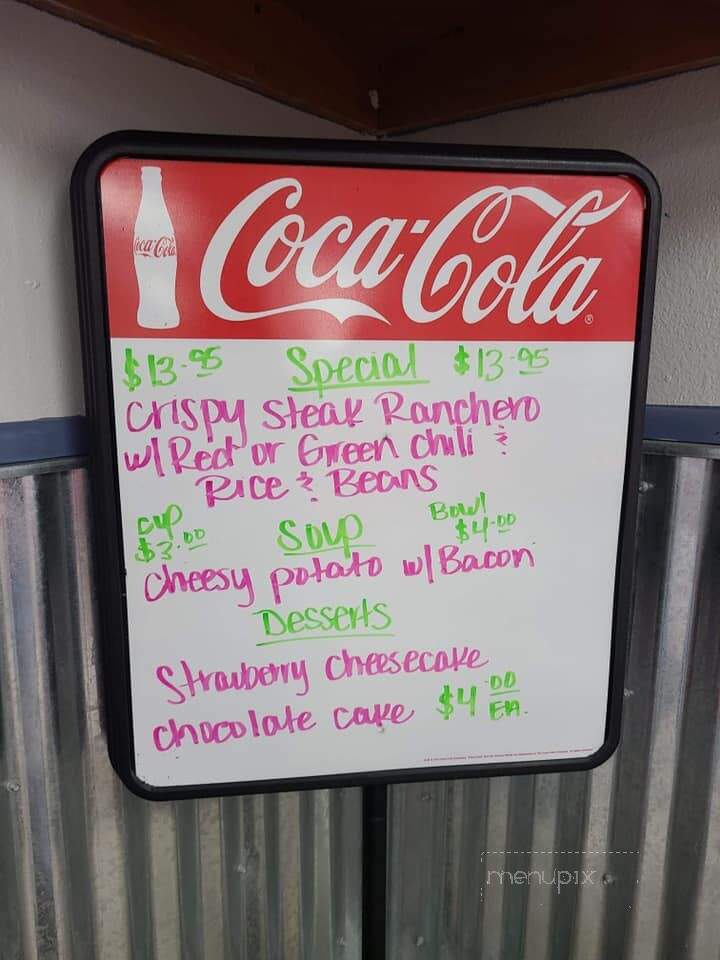 Coca-Cola
Coca-Cola®
$13.95 Special $13.95
Crispy Steak Ranchero
w/ Red or Green chili &
Rice & Beans
cup Bowl
$3.00 Soup $4.00
Cheesy potato w/ Bacon
Desserts
Strawberry Cheesecake
chocolate cake $4.00 EA.
menupix